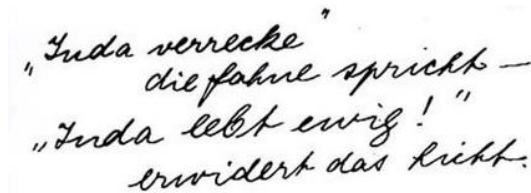 „Juda verrecke”
die fahne spricht –
„Juda lebt ewig!”
erwidert das Licht.